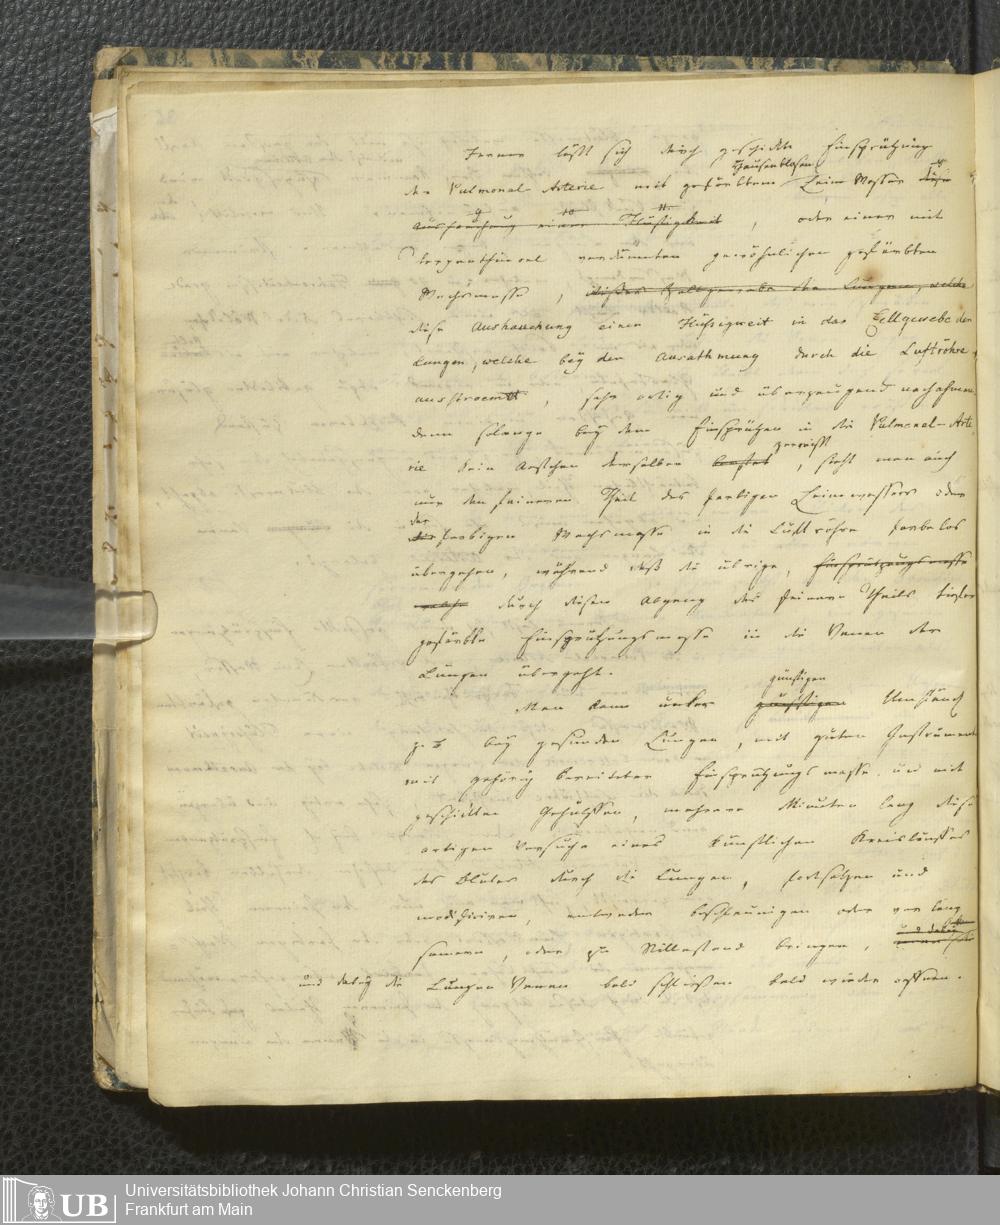 Ferner läßt sich durch geschickte Einsprützung
der Pulmonal-Arterie mit gefärbtem Hausenblasen Leim Wasser diese
Aushauchung einer Flüßigkeit, oder einer mit
terpenthinoel verdünnten gewöhnlichen gefärbten
Wachsmasse, Zellgewebe der Lungen, welche
diese Aushauchung einer Flüßigkeit in das Zellgewebe der
Lungen, welche bey der Ausathmung durch die Luftröhre
ausstroemt, sehr artig und überzeugend nachahmen
denn solange bey dem Einsprützen in die Pulmonal-Arte
rie kein Aestchen derselben berstet zerreißt, sieht man auch
nur den feineren Theil des farbigen Leimwassers oder
die der farbigen Wachsmasse in die Luftröhre farbelos
übergehen, während daß die übrige, Einsprützungsmasse
welche durch diesen Abgang des feineren Theils tiefer
gefärbte Einsprützungsmasse in die Venen der
Lungen übergeht.
Man kann unter günstigen günstigen Umständ
z. b bey gesunden Lungen, mit guten Instrument
mit gehörig bereiteter Einsprützungsmasse, und mit
geschickten Gehülffen, mehrere Minuten lang diese
artigen Versuche eines künstlichen Kreislaufes
des Blutes durch die Lungen, fortsetzen und
modificiren, entweder beschleunigen oder verlang
samern, oder zu Stillestand bringen, und dabey
und dabey die Lungen Venen bald schließen bald wieder oeffnen.
Universitätsbibliothek Johann Christian Senckenberg
Frankfurt am Main
UB